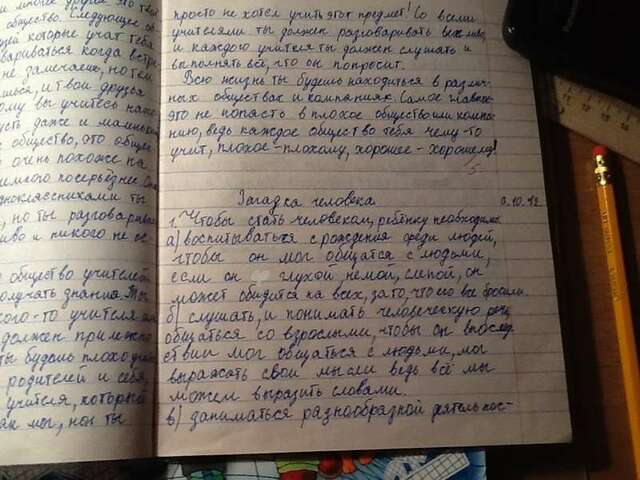 много других
общество. Следующее
щей которые учат тебя
вариваться когда встре
не замечаешь, но тем
шься, и твои друзья
ому вы учитесь
усть даже и маленьк
общество, это обще
очень похоже на
немного посерьёзнее.
дноклассниками ты
, но ты разговарива
иво и никого не
общество учителей
олучать знания. Ты
кого-то учителя
должен прилежно
ты будешь плохо
родителей и себя,
учителя, который
ты
просто не хотел учить этот предмет! Со всеми
учителями ты должен разговаривать вежливо,
и каждого учителя ты должен слушать и
выполнять всё, что он попросит.
Всю жизнь ты будешь находиться в различ-
ных обществах и компаниях. Самое главное
это не попасть в плохое общество или компа-
нию, ведь каждое общество тебя чему-то
учит, плохое - плохому, хорошее - хорошему!
5
Загадка человека 9.10.12
1. Чтобы стать человеком, ребёнку необходимо
а) воспитываться с рождения среди людей,
чтобы он мог общатся с людьми,
если он глухой немой, слепой, он
может обидется на всех, за то, что его все бросили.
б) слушать, и понимать человеческую речь
общаться со взрослыми, чтобы он впослед
ствии мог общаться с людьми, мог
выражать свои мысли ведь всё мы
можем выразить словами.
в) заниматься разнообразной деятельнос-